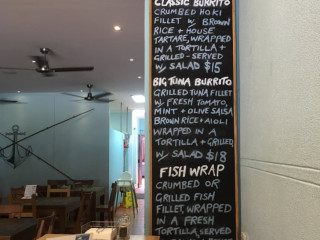 CLASSIC BURRITO
CRUMBED HOKI
FILLET W/ BROWN
RICE + HOUSE
TARTARE, WRAPPED
IN A TORTILLA +
GRILLED - SERVED
W/ SALAD $15
BIG TUNA BURRITO
GRILLED TUNA FILLET
W/ FRESH TOMATO,
MINT + OLIVE SALSA
BROWN RICE + AIOLI
WRAPPED IN A
TORTILLA + GRILLED
W/ SALAD $18
FISH WRAP
CRUMBED OR
GRILLED FISH
FILLET, WRAPPED
IN A FRESH
TORTILLA, SERVED